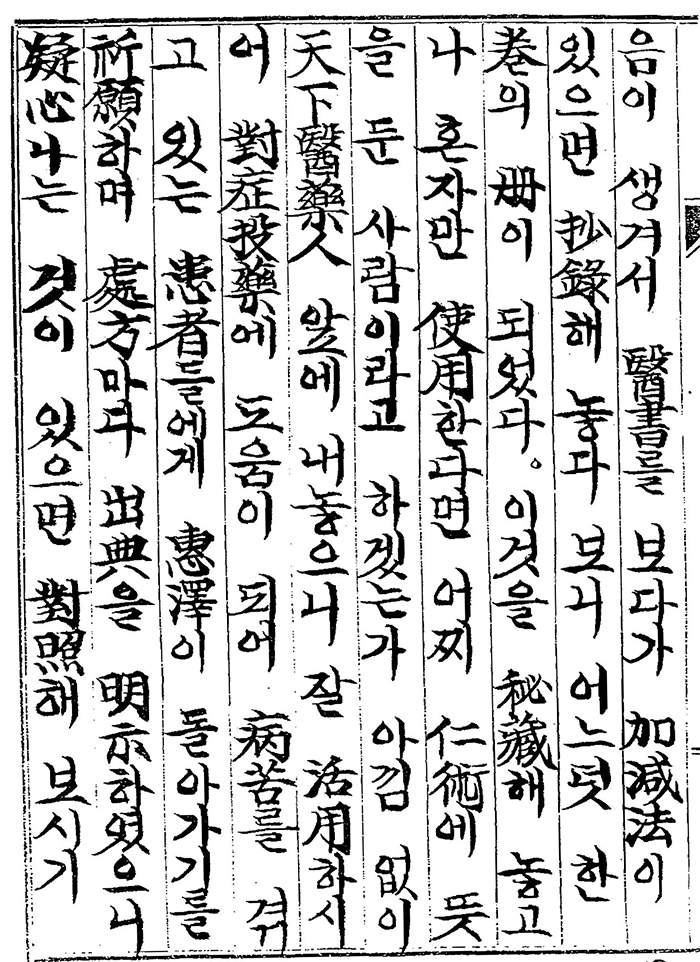 음이 생겨서 醫書를 보다가 加減法이
있으면 抄錄해 놓다 보니 어느덧 한
卷의 册이 되었다。이것을 秘藏해 놓고
나 혼자만 使用한다면 어찌 仁術에 뜻
을 둔 사람이라고 하겠는가 아낌 없이
天下醫藥人 앞에 내놓으니 잘 活用하시
어 對症投藥에 도움이 되어 病苦를 겪
고 있는 患者들에게 惠澤이 돌아가기를
祈願하며 處方마다 出典을 明示하였으니
疑心나는 것이 있으면 對照해 보시기